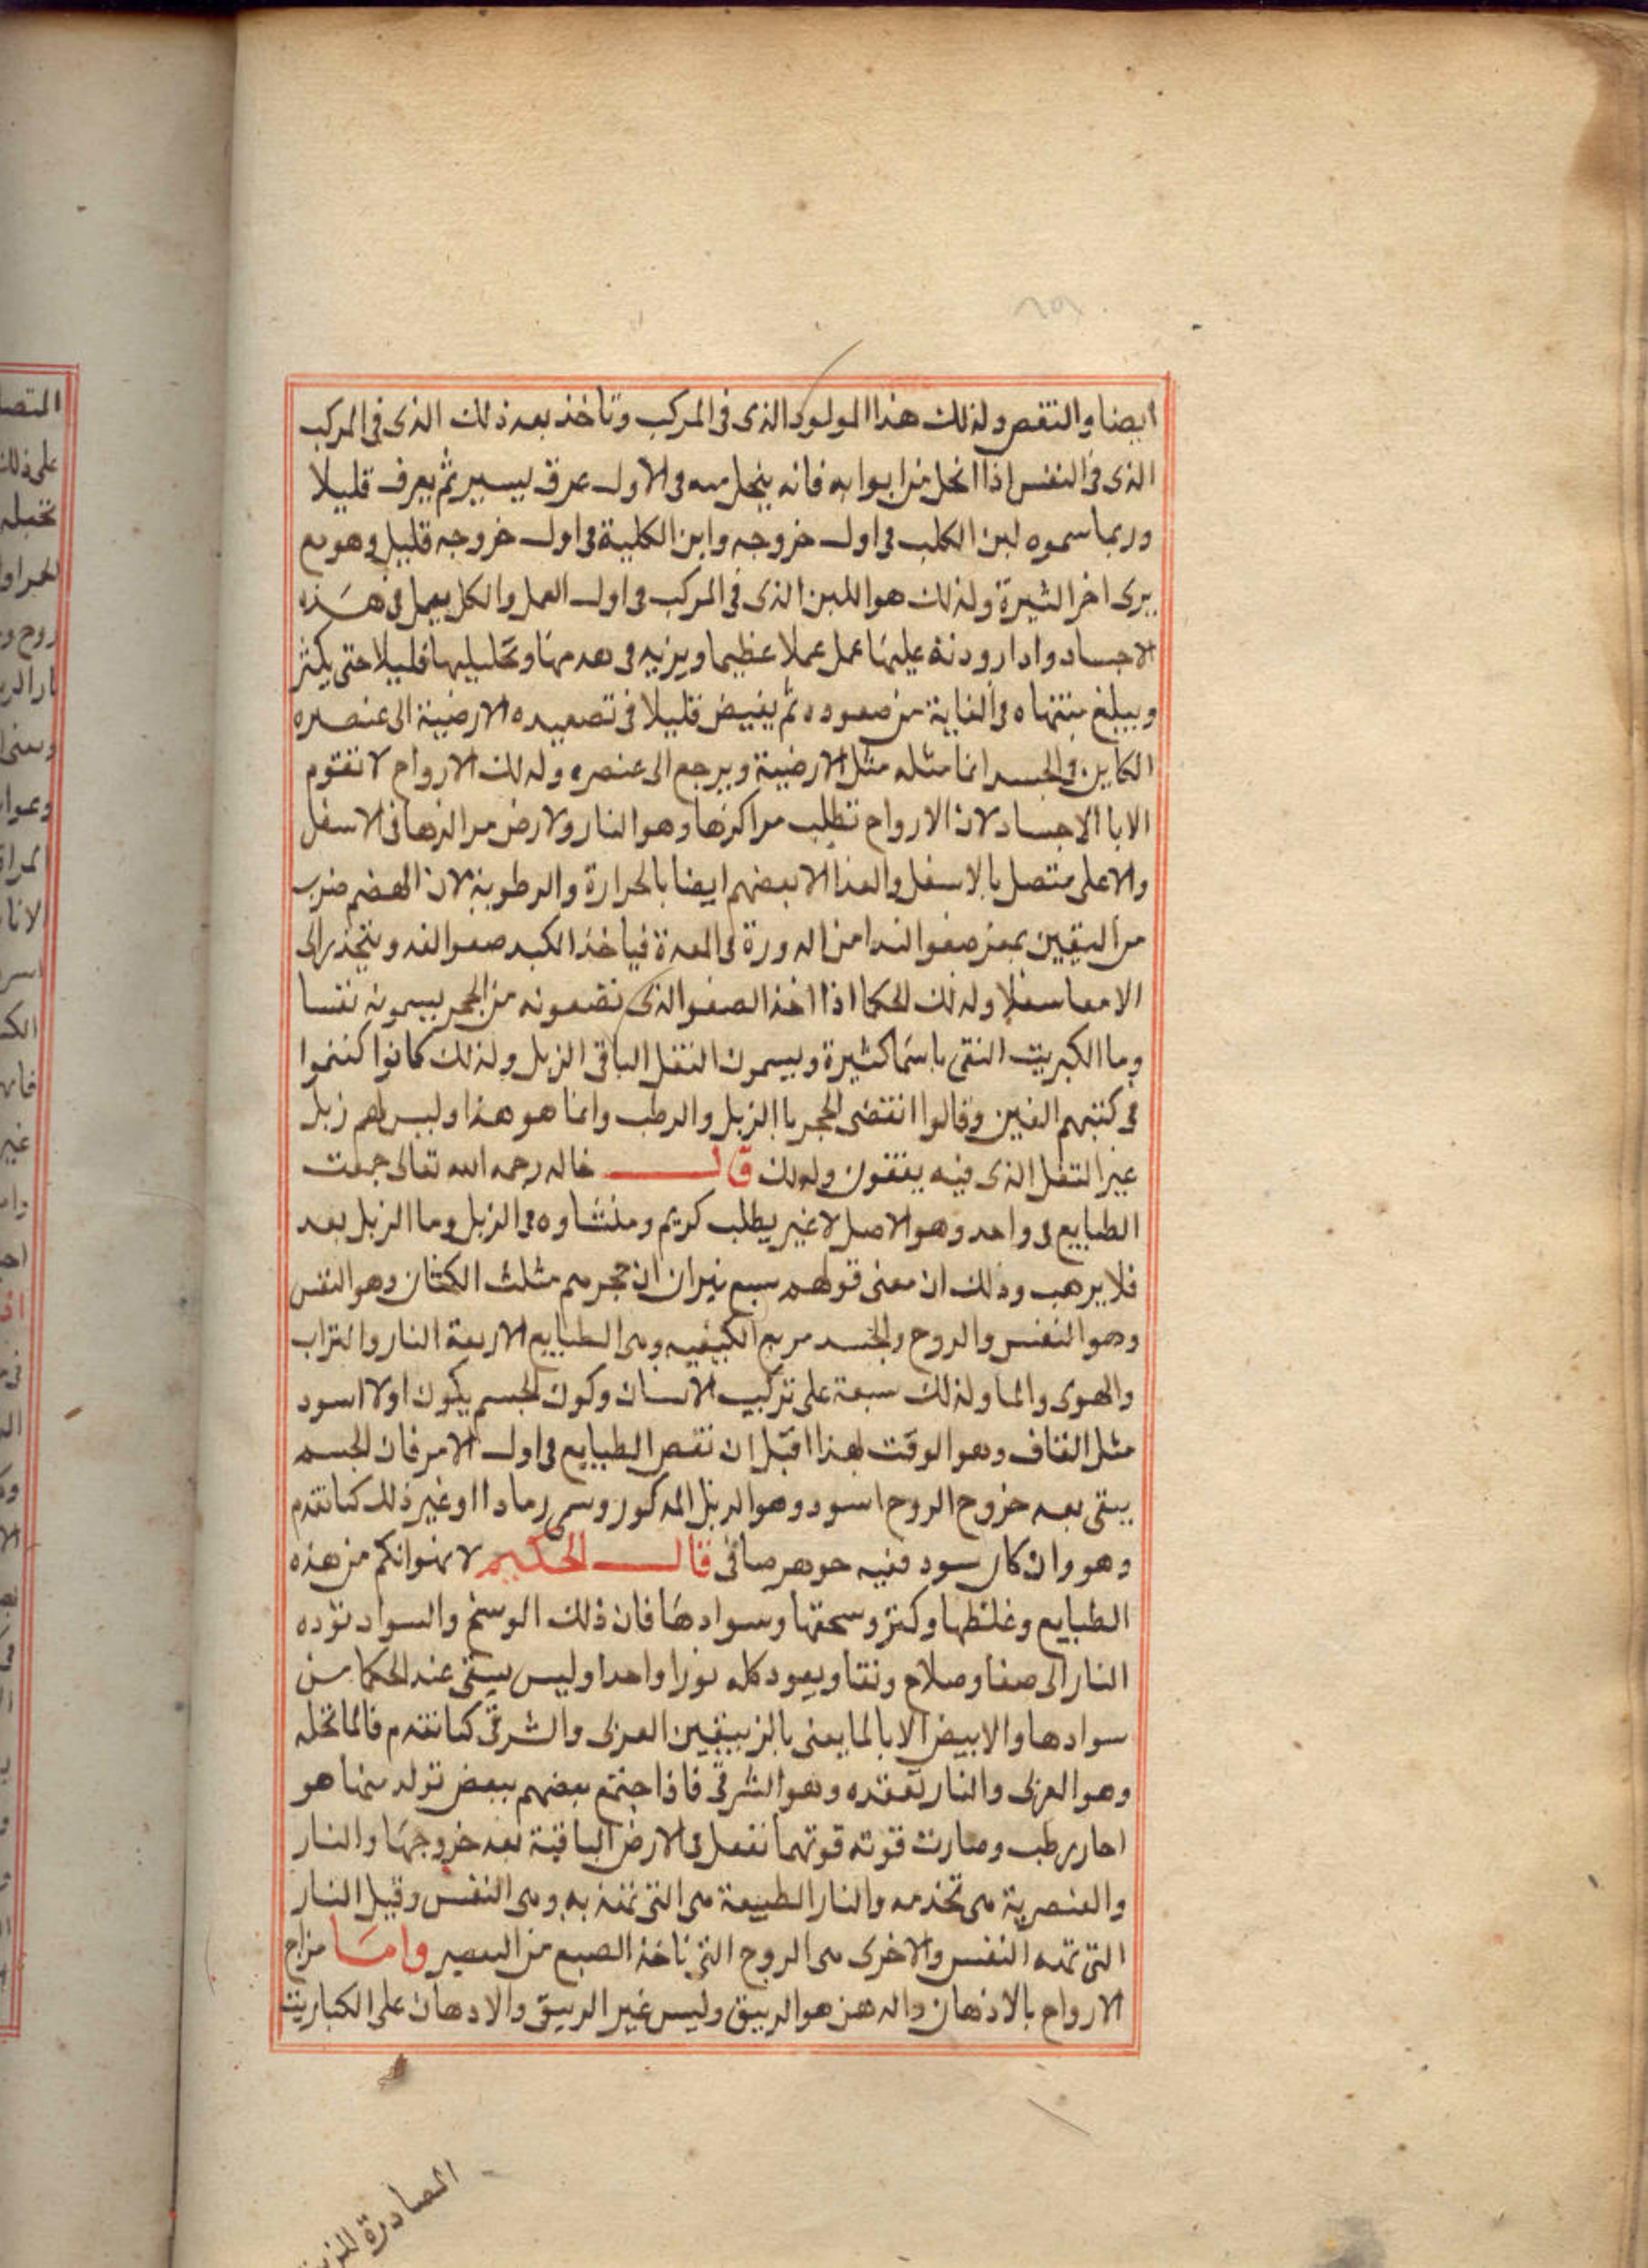 ايضا والنقص ولذلك هذا المولود الذى فى المركب وتاخذ بعد ذلك الذى فى المركب
الذى فى النفس اذا انحل من ابوابه فانه ينحل منه فى الاول عرق يسير ثم يعرف قليلا
وربما سموه لبن الكلب فى اول خروجه وابن الكلبة فى اول خروجه قليل وهو مع
يرى اخر الثيرة ولذلك هو اللبن الذى فى المركب فى اول العمل والكل يعمل فى هذه
الاجساد واذا عليها عمل عملا عظيما ويزيد فى هدمها وتحليلها قليلا حتى يكثر
ويبلغ منتهاه فى الغاية من صعوده ثم يغيض قليلا فى تصعيده الارضية الى عنصره
الكاين والجسد انما مثله مثل الارضية ويرجع الى عنصره ولذلك الارواح لا تقوم
الا با الاجساد لان الارواح تطلب مراكزها وهو النار ولارض مراكزها فى الاسفل
والاعلى متصل بالاسفل والغذا لا بعضهم ايضا بالحرارة والرطوبة لان الهضم ضرب
من اليقين صفوا الغذا من الدورة فى المعدة فياخذ الكبد صفوا الغد وينحدر الى
الامعا سفلا ولذلك الحكما اذا اخذ الصفو الذى تضعونه من الحجر يسمونه نفسا
وما الكبريت النقى باسما كثيرة ويسمون الثفل الباقى الزبل ولذلك كانوا كتموا
فى كتبهم الغين وقالوا انقضى الحجر با الزبل والرطب وانما هو هذا وليس لهم زبل
غير الثفل الذى فيه يفقون ولذلك قال خالد رحمه الله تعالى جمعت
الطبايع فى واحد وهو الاصل لا غير يطلب كريم ومنشاوه فى الزبل وما الزبل بعد
فلا يرهب وذلك ان معنى قولهم سبع نيران ان حجرهم مثلث الكيان وهو النفس
وهو النفس والروح والجسد مربع الكيفيه وهى الطبايع الاربعة النار والتراب
والهوى والما ولذلك سبعة على تركيب الانسان وكون الجسم يكون اولا اسود
مثل القاف وهو الوقت لهذا اقبل ان نقص الطبايع فى اول الامر فان الجسم
يبقى بعد خروج الروح اسود وهو الزبل المذكور وسمى رمادا او غير ذلك كما تقدم
وهو وان كان سود فيه جوهر صافى قال الحكيم لا يهولنكم من هذه
الطبايع وغلظها وكثرة وسحقها وسوادها فان ذلك الوسخ والسواد تؤده
النار الى صفا وصلاح ونقا ويعود كله نورا واحدا وليس يبقى عند الحكما من
سوادها والابيض الا بالما يعنى بالزيبقين الغربى والشرقى كما تقدم فالما تحله
وهو الغربى والنار تعقده وهو الشرقى فاذا اجتمع بعضهم ببعض تولد منها هو
احار رطب وصارت قوته قوتهما تفعل فى الارض الباقية بعد خروجها والنار
والعنصرية هى تخدمه والنار الطبيعة هى التى تمتد به وهى النفس وقيل النار
التى تمده النفس والاخرى هى الروح التى تاخذ الصبع من العصير واما مزاج
الارواح بالادهان والدهن هو الزيبق وليس غير الزيبق والادهان على الكباريت
الصادرة